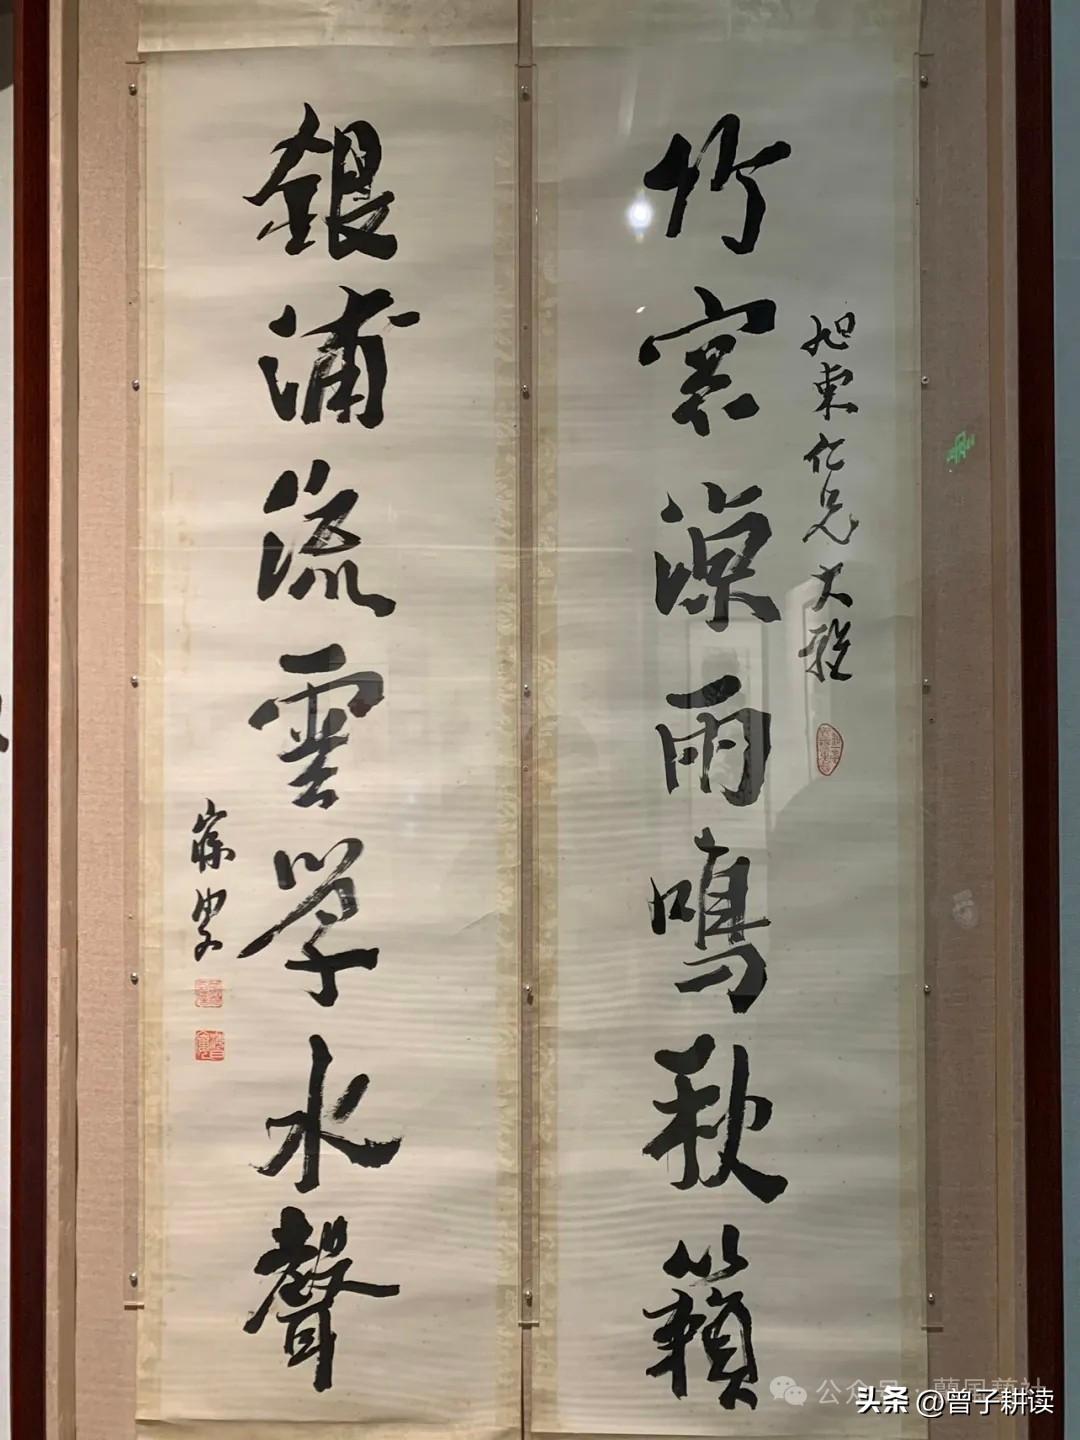 旭東仁兄大雅
竹窓涼雨鳴秋籟
銀浦流雲學水聲
寐叟
公众号·蘭国藝社
头条 @曾子耕读